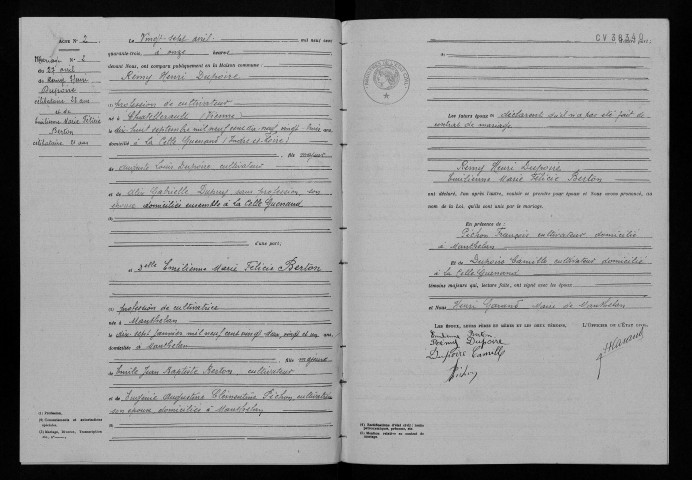 ACTE N° 2
Mariage N° 2
du 27 avril
de Remy Henri
Dupoire
célibataire 23 ans
et de
Emilienne Marie Félicie
Berton
célibataire 21 ans
Le Vingt sept avril mil neuf cent
quarante-trois à onze heures
devant Nous, ont comparu publiquement en la Maison commune :
Remy Henri Dupoire
(1) profession de cultivateur
né à Chatellerault (Vienne)
le dix huit septembre mil neuf cent dix neuf, vingt trois ans
domicilié à La Celle Guenand (Indre et Loire)
fils majeur
de Auguste Louis Dupoire cultivateur
et de Alix Gabrielle Dupuy sans profession, son
épouse domiciliés ensemble à la Celle Guenand
d'une part,
et Melle Emilienne Marie Félicie Berton
(1) profession de cultivatrice
née à Manthelan
le dix sept janvier mil neuf cent vingt deux, vingt et un ans
domiciliée à Manthelan
fille majeure
de Emile Jean Baptiste Berton, cultivateur
et de Eugénie Augustine Clémentine Pichon, cultivatrice
son épouse domiciliés à Manthelan
(1) Profession.
(2) Consentements et autorisations
spéciales.
(3) Mariage, Divorce, Transcription
CV 38340
Les futurs époux déclarent qu'il n'a pas été fait de
contrat de mariage.
Remy Henri Dupoire
Emilienne Marie Félicie Berton
ont déclaré, l'un après l'autre, vouloir se prendre pour époux et Nous avons prononcé, au
nom de la Loi, qu'ils sont unis par le mariage.
En présence de :
Pichon François cultivateur domicilié
à Manthelan
et de Dupoire Camille cultivateur domicilié
à la Celle Guenand
témoins majeurs qui, lecture faite, ont signé avec les époux
et Nous Henri Maire de Manthelan
LES ÉPOUX, LEURS PÈRES ET MÈRES ET LES DEUX TÉMOINS, L'OFFICIER DE L'ÉTAT CIVIL,
Emilienne Berton
Remy Dupoire
Dupoire Camille
Pichon